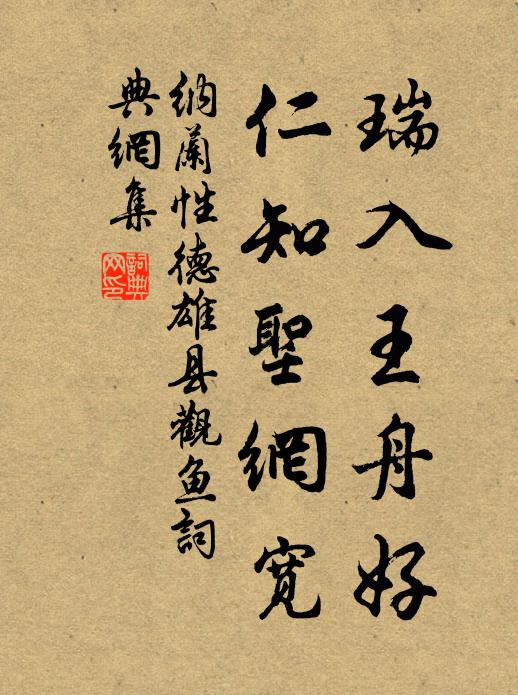 瑞入王舟好
仁知聖網寬
納蘭性德雄县觀鱼詞
典網集
詞典
网印